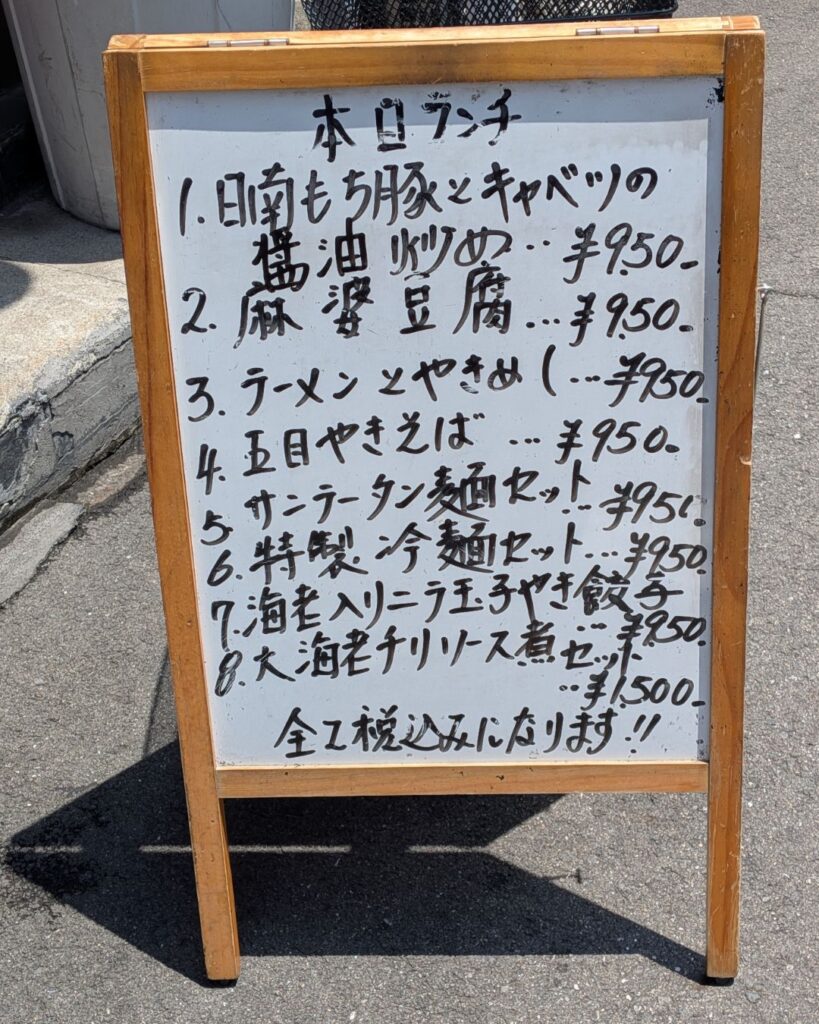 本日ランチ
1.日南もち豚とキャベツの
醤油炒め…¥950-
2.麻婆豆腐…¥950-
3.ラーメンとやきめし…¥950-
4.五目やきそば…¥950-
5.サンラータン麺セット
…¥950-
6.特製冷麺セット…¥950-
7.海老入りニラ玉子やき餃子
…¥950-
8.大海老チリソース煮セット
…¥1,500-
全て税込みになります!!